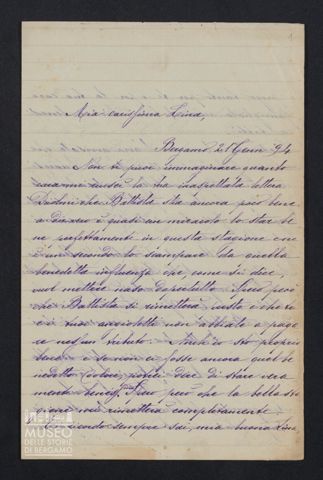 1
Mia carissima Lina,
Bergamo 21 Genn 94
Non ti puoi immaginare quanto
cara mi riuscì la tua inaspettata lettera
che Battista sta ancora poco bene
a dir vero è quasi un miracolo lo star be
ne perfettamente in questa stagione con
è un secondo lo scampare da questa
benedetta influenza che come si dice
vuol mettere naso dapertutto. Spero però
che Battista si rimetterà presto e che te
e i tuoi non abbiate a paga
re nessun tributo. Anch'io sto proprio
bene e se non ci fosse ancora qualche
dolore, potrei dire di stare vera
mente bene. Spero però che la bella sta
gione mi rimetterà completamente
ricordo sempre sai, mia buona Lina,
MUSEO
DELLE STORIE
DI BERGAMO